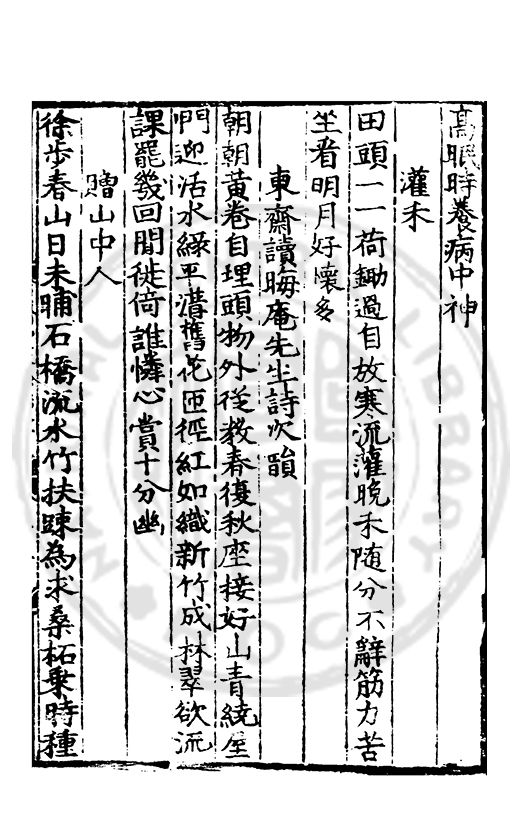 高眠時養病中神
灌禾
田頭一一荷鋤過自放寒流灌晚禾随分不辭筋力苦
坐看明月好懷多
東齋讀晦庵先生詩次韻
朝朝黃卷自埋頭物外從教春復秋座接好山青繞屋
門迎活水綠平溝舊花匝徑紅如織新竹成林翠欲流
課罷幾回閒徙倚誰憐心賞十分幽
贈山中人
徐步春山日未晡石橋流水竹扶踈為求桑柘乗時種